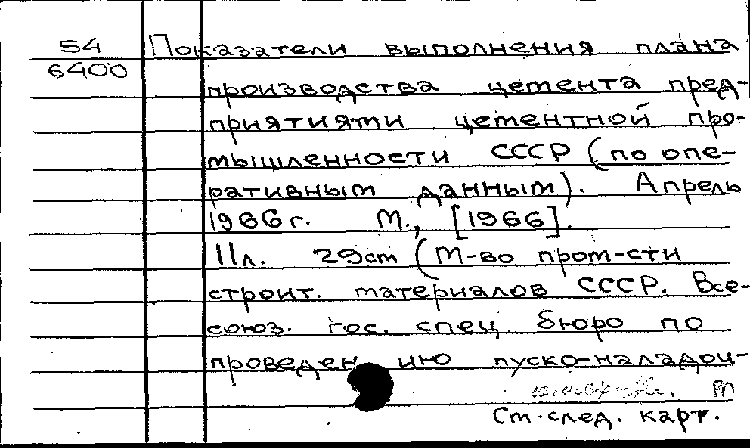 54 Показатели выполнения плана
6400
производства цемента пред-
приятиями цементной про-
мышленности СССР (по опе-
ративным данным). Апрель
1966г. М., [1966].
11л. 29см (М-во пром-сти
строит. материалов СССР. Все-
союз. гос. спец. бюро по
проведению пуско-наладоч-
М
См.след. карт.